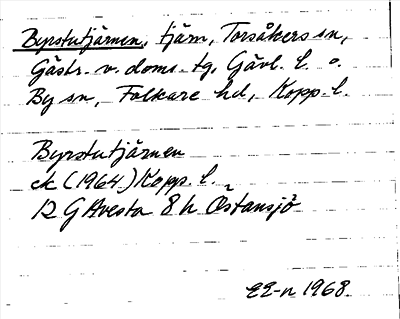 Byrstutjärnen, tjärn, Torsåkers sn,
Gästr. v. doms. tg, Gävl. l. o.
By sn, Folkare hd, Kopp. l.
Byrstutjärnen
ek (1964) Kopp. l.
12 G Avesta 8 h Östansjö
EE-n 1968.